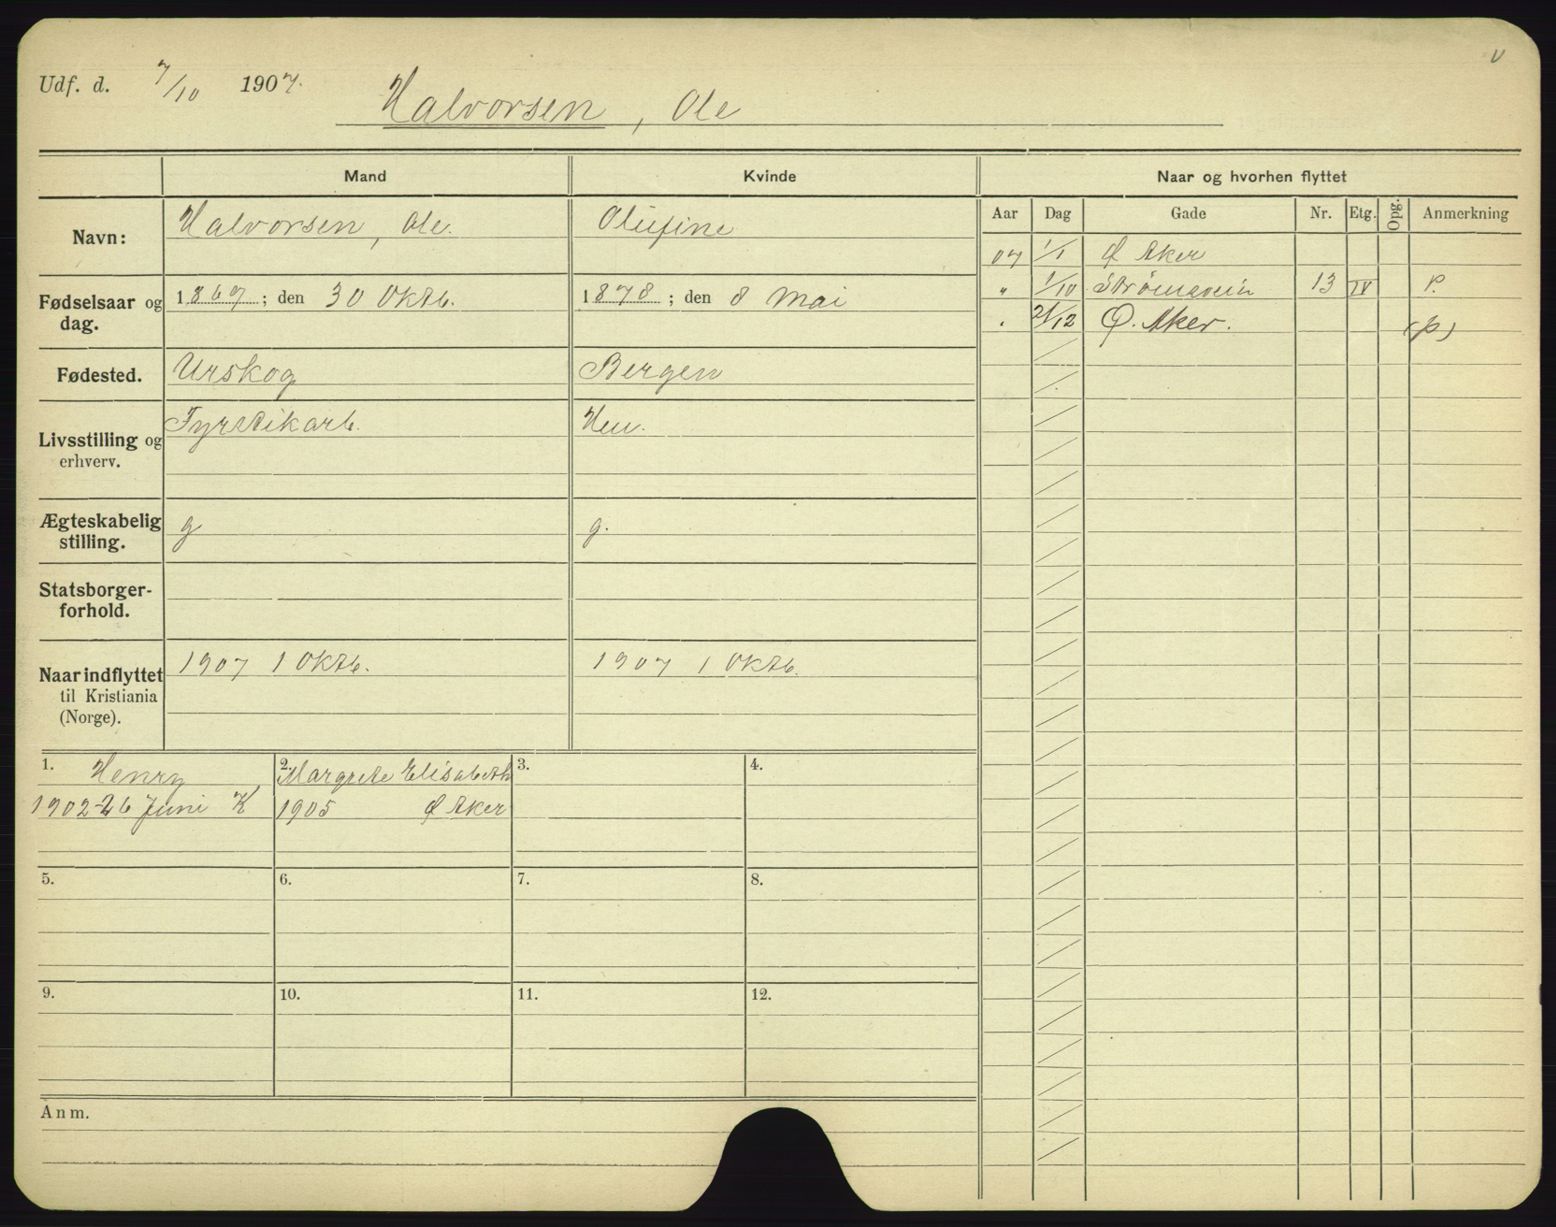 Udf. d. 7/10 1907.
Halvorsen, Ole
Mand Kvinde Naar og hvorhen flyttet
Aar Dag Gade Nr. Etg. Opg. Anmerkning
Navn: Halvorsen, Ole. Olufine
07 1/1 Ø Aker
" 1/10 Strömsvein 13 IV P.
. 21/12 Ø. Aker. (p)
Fødselsaar og 1869; den 30 Oktb. 1878; den 8 Mai
dag.
Fødested. Urskog Bergen
Livsstilling og Fyrstikarb. Hu.
erhverv.
Ægteskabelig g g.
stilling.
Statsborger-
forhold.
Naar indflyttet 1907 1 Oktb. 1907 1 Oktb.
til Kristiania
(Norge).
1. Henry 2. Margrete Elisabeth 3. 4.
1902-26 Juni K 1905 Ø Aker
5. 6. 7. 8.
9. 10. 11. 12.
Anm.